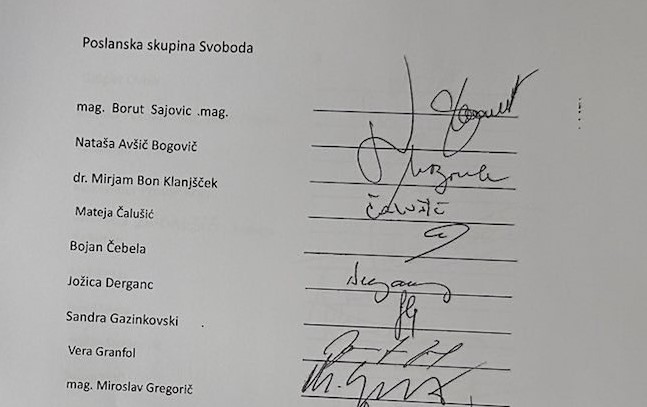 Poslanska skupina Svoboda
mag. Borut Sajovic .mag.
Nataša Avšič Bogovič
dr. Mirjam Bon Klanjšček
Mateja Čalušić Čalušić
Bojan Čebela
Jožica Derganc
Sandra Gazinkovski .
Vera Granfol
mag. Miroslav Gregorič